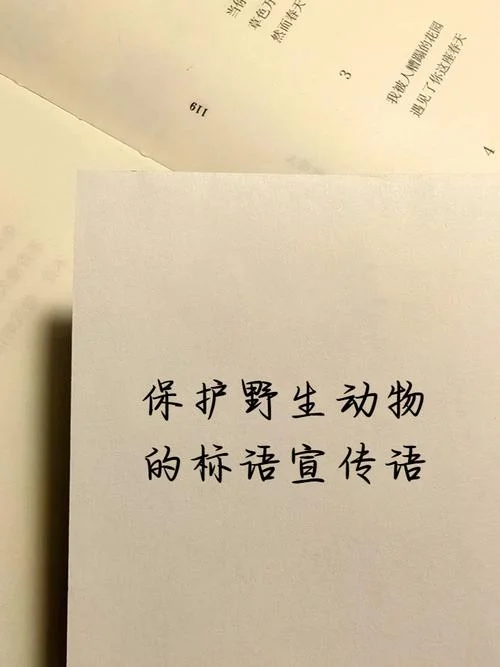 当你
草色万
然而春天
3
我被人糟蹋的花园
遇见了你这座春天
4
119
保护野生动物
的标语宣传语